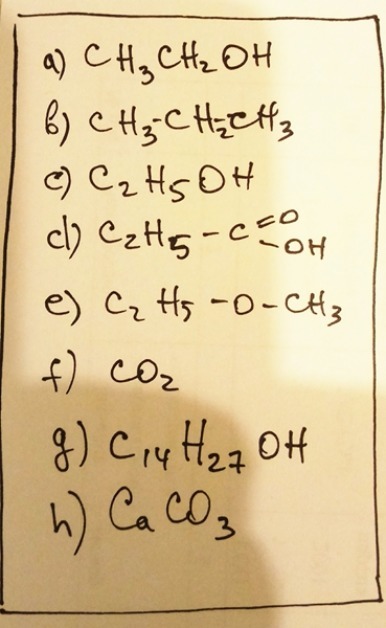 a) CH₃CH₂OH
b) CH₃-CH₂-CH₃
c) C₂H₅OH
d) C₂H₅-C=O-OH
e) C₂H₅-O-CH₃
f) CO₂
g) C₁₄H₂₇OH
h) CaCO₃